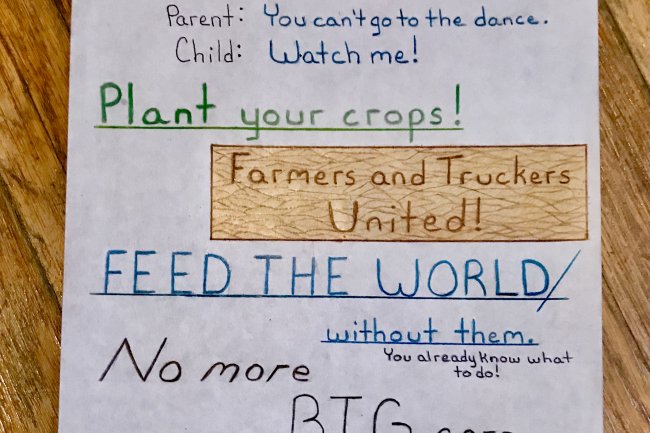 Parent: You can't go to the dance.
Child: Watch me!
Plant your crops!
Farmers and Truckers
United!
FEED THE WORLD/
without them.
You already know what
to do!
No more
BIG